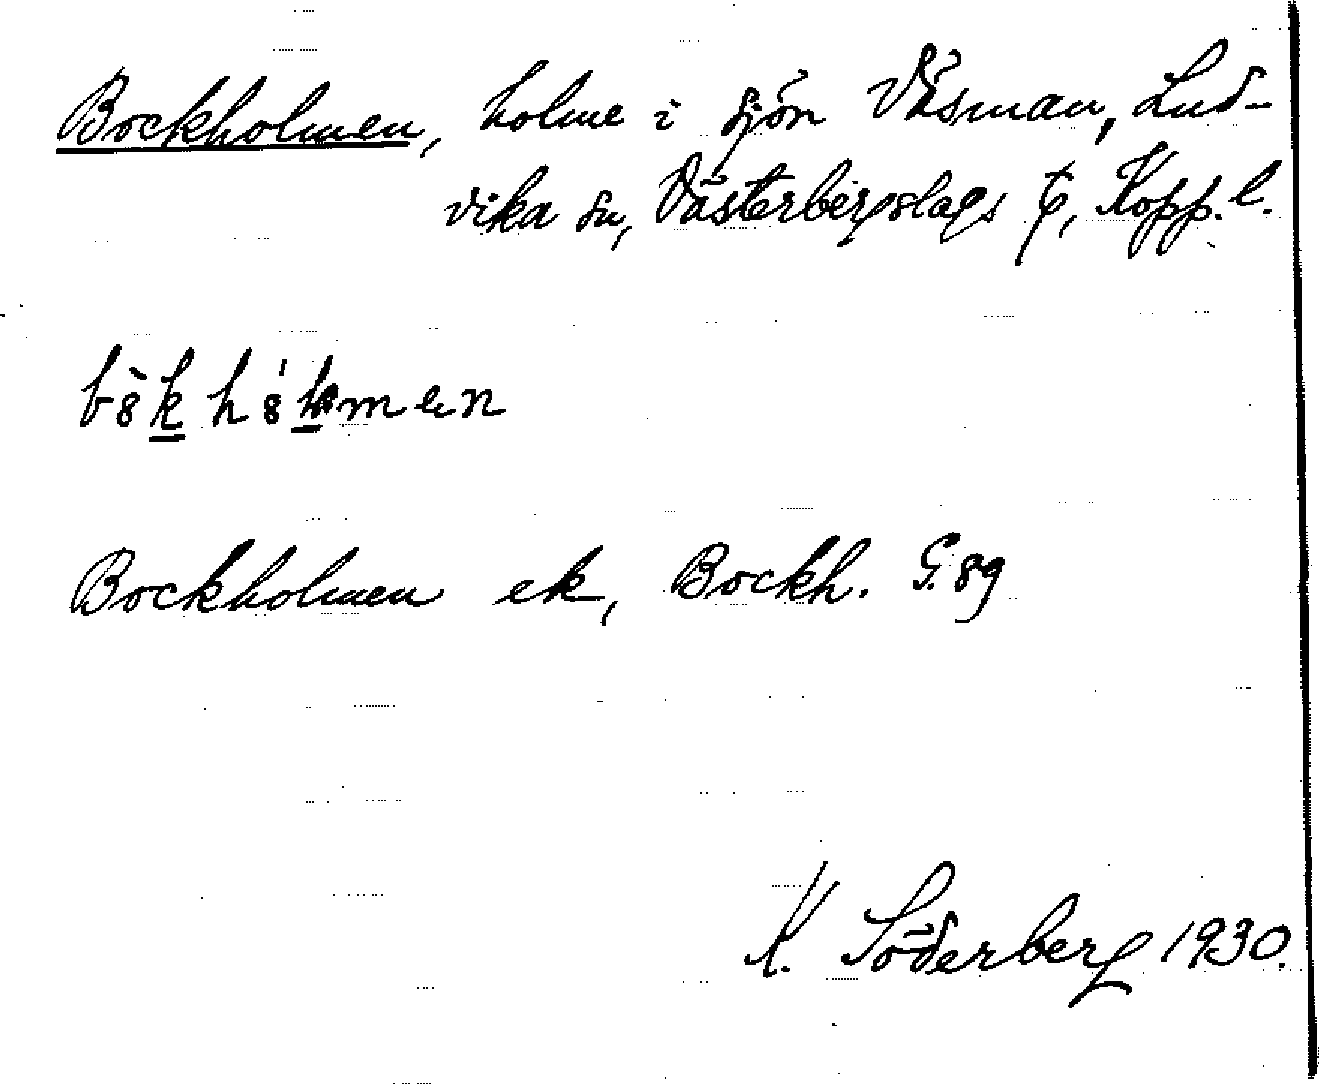 Bockholmen, holme i sjön Väsman, Lud-
vika sn, Västerbergslags tg, Kopp. l.
Bockholmen ek, Bockh. G. 89
K. Söderberg 1930.